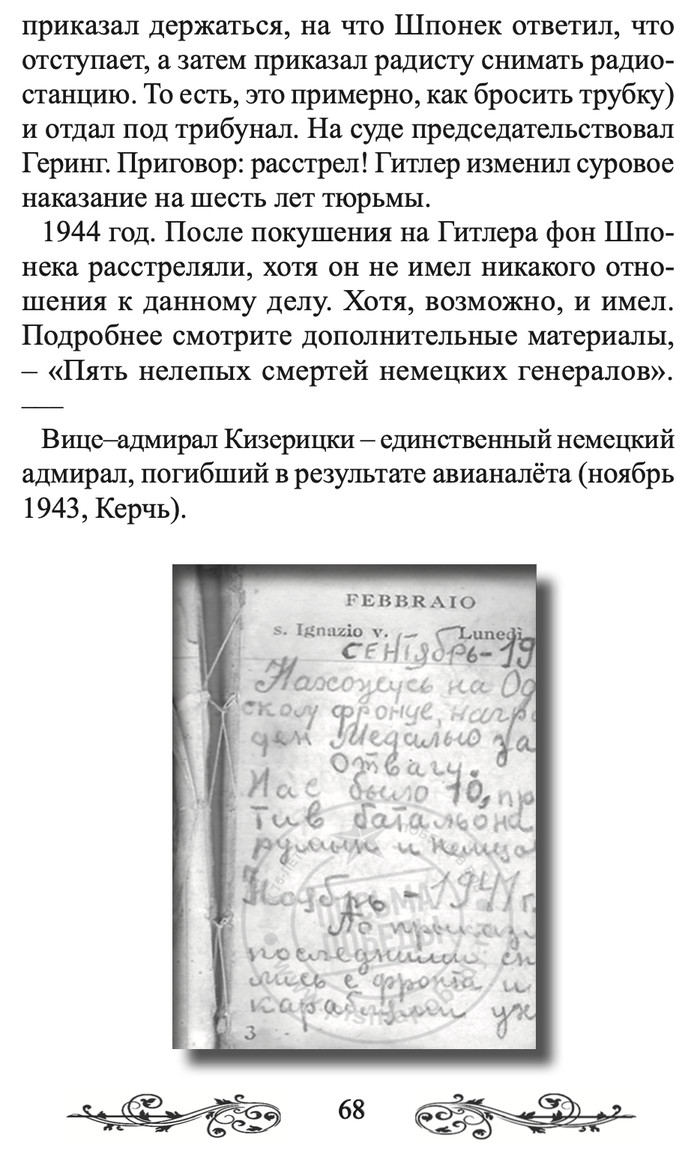 приказал держаться, на что Шпонек ответил, что
отступает, а затем приказал радисту снимать радио-
станцию. То есть, это примерно, как бросить трубку)
и отдал под трибунал. На суде председательствовал
Геринг. Приговор: расстрел! Гитлер изменил суровое
наказание на шесть лет тюрьмы.
1944 год. После покушения на Гитлера фон Шпо-
нека расстреляли, хотя он не имел никакого отно-
шения к данному делу. Хотя, возможно, и имел.
Подробнее смотрите дополнительные материалы,
– «Пять нелепых смертей немецких генералов».
Вице–адмирал Кизерицки – единственный немецкий
адмирал, погибший в результате авианалёта (ноябрь
1943, Керчь).
FEBBRAIO
s. Ignazio v. Lunedì
СЕНТЯБРЬ-19
Нахожусь на Од
скому фронце, нагр
ден Медалью за
Отвагу.
Нас было 10, пр
тив батальона
румын и
Ноябрь - 1941 г.
По приказ
последними сн
лись с фронта и
караблями
3
ПИСЬМА
ПОБЕДЫ
68